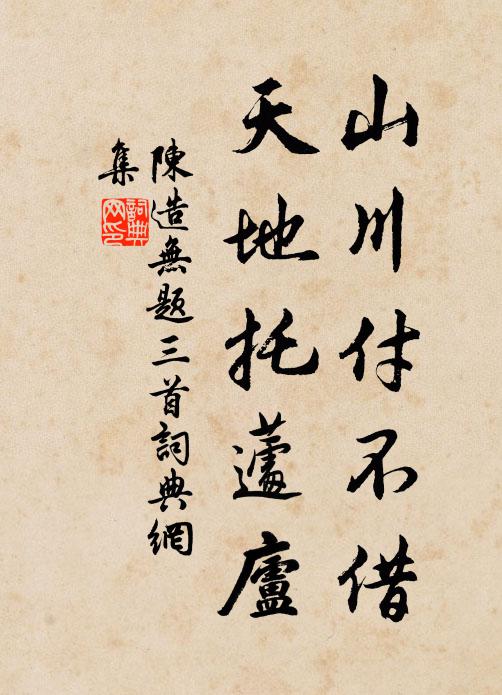 山川付不借
天地托蘧廬
陳造無題三首詞典網
集
詞典
网印